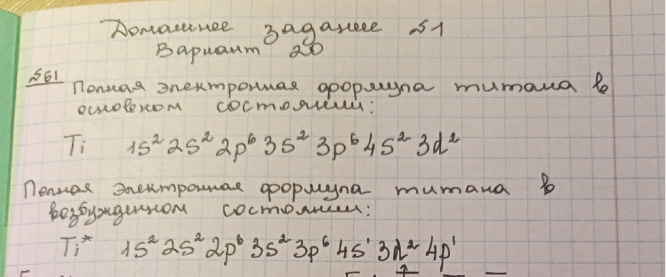 Домашнее задание №1
Вариант 20
№61 Полная электронная формула титана в
основном состоянии:
Ti 1s² 2s² 2p⁶ 3s² 3p⁶ 4s² 3d²
Полная электронная формула титана в
возбужденном состоянии:
Ti* 1s² 2s² 2p⁶ 3s² 3p⁶ 4s¹ 3d² 4p¹